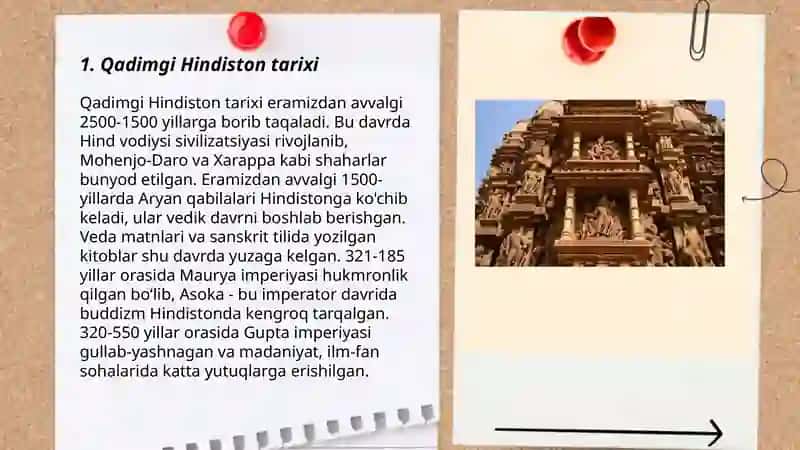 1. Qadimgi Hindiston tarixi
Qadimgi Hindiston tarixi eramizdan avvalgi
2500-1500 yillarga borib taqaladi. Bu davrda
Hind vodiysi sivilizatsiyasi rivojlanib,
Mohenjo-Daro va Xarappa kabi shaharlar
bunyod etilgan. Eramizdan avvalgi 1500-
yillarda Aryan qabilalari Hindistonga ko'chib
keladi, ular vedik davrni boshlab berishgan.
Veda matnlari va sanskrit tilida yozilgan
kitoblar shu davrda yuzaga kelgan. 321-185
yillar orasida Maurya imperiyasi hukmronlik
qilgan bo‘lib, Asoka - bu imperator davrida
buddizm Hindistonda kengroq tarqalgan.
320-550 yillar orasida Gupta imperiyasi
gullab-yashnagan va madaniyat, ilm-fan
sohalarida katta yutuqlarga erishilgan.